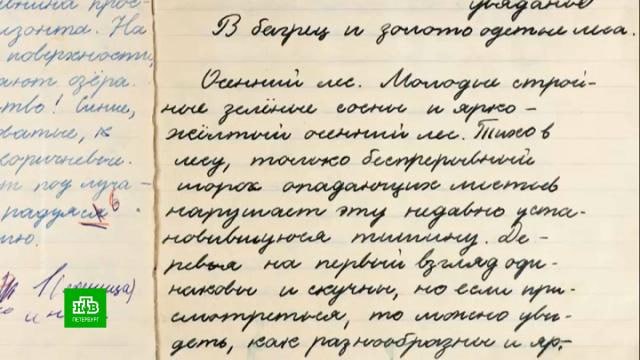 внина прос-
изонта. На
поверхности,
ают озёра.
ство! Синие,
ватые, к
коричневые.
т под луча-
радуяся в
ию.
1 (единица)
НТВ
ПЕТЕРБУРГ
увядание
В багрец и золото одетые леса.
Осенний лес. Молодые строй-
ные зелёные сосны и ярко-
жёлтый осенний лес. Тихо в
лесу, только беспрерывный
шорох опадающих листьев
нарушает эту недавно уста-
новившуюся тишину. Де-
ревья на первый взгляд оди-
наковы и скучны, но если при-
смотреться, то можно уви-
деть, как разнообразны и яр-